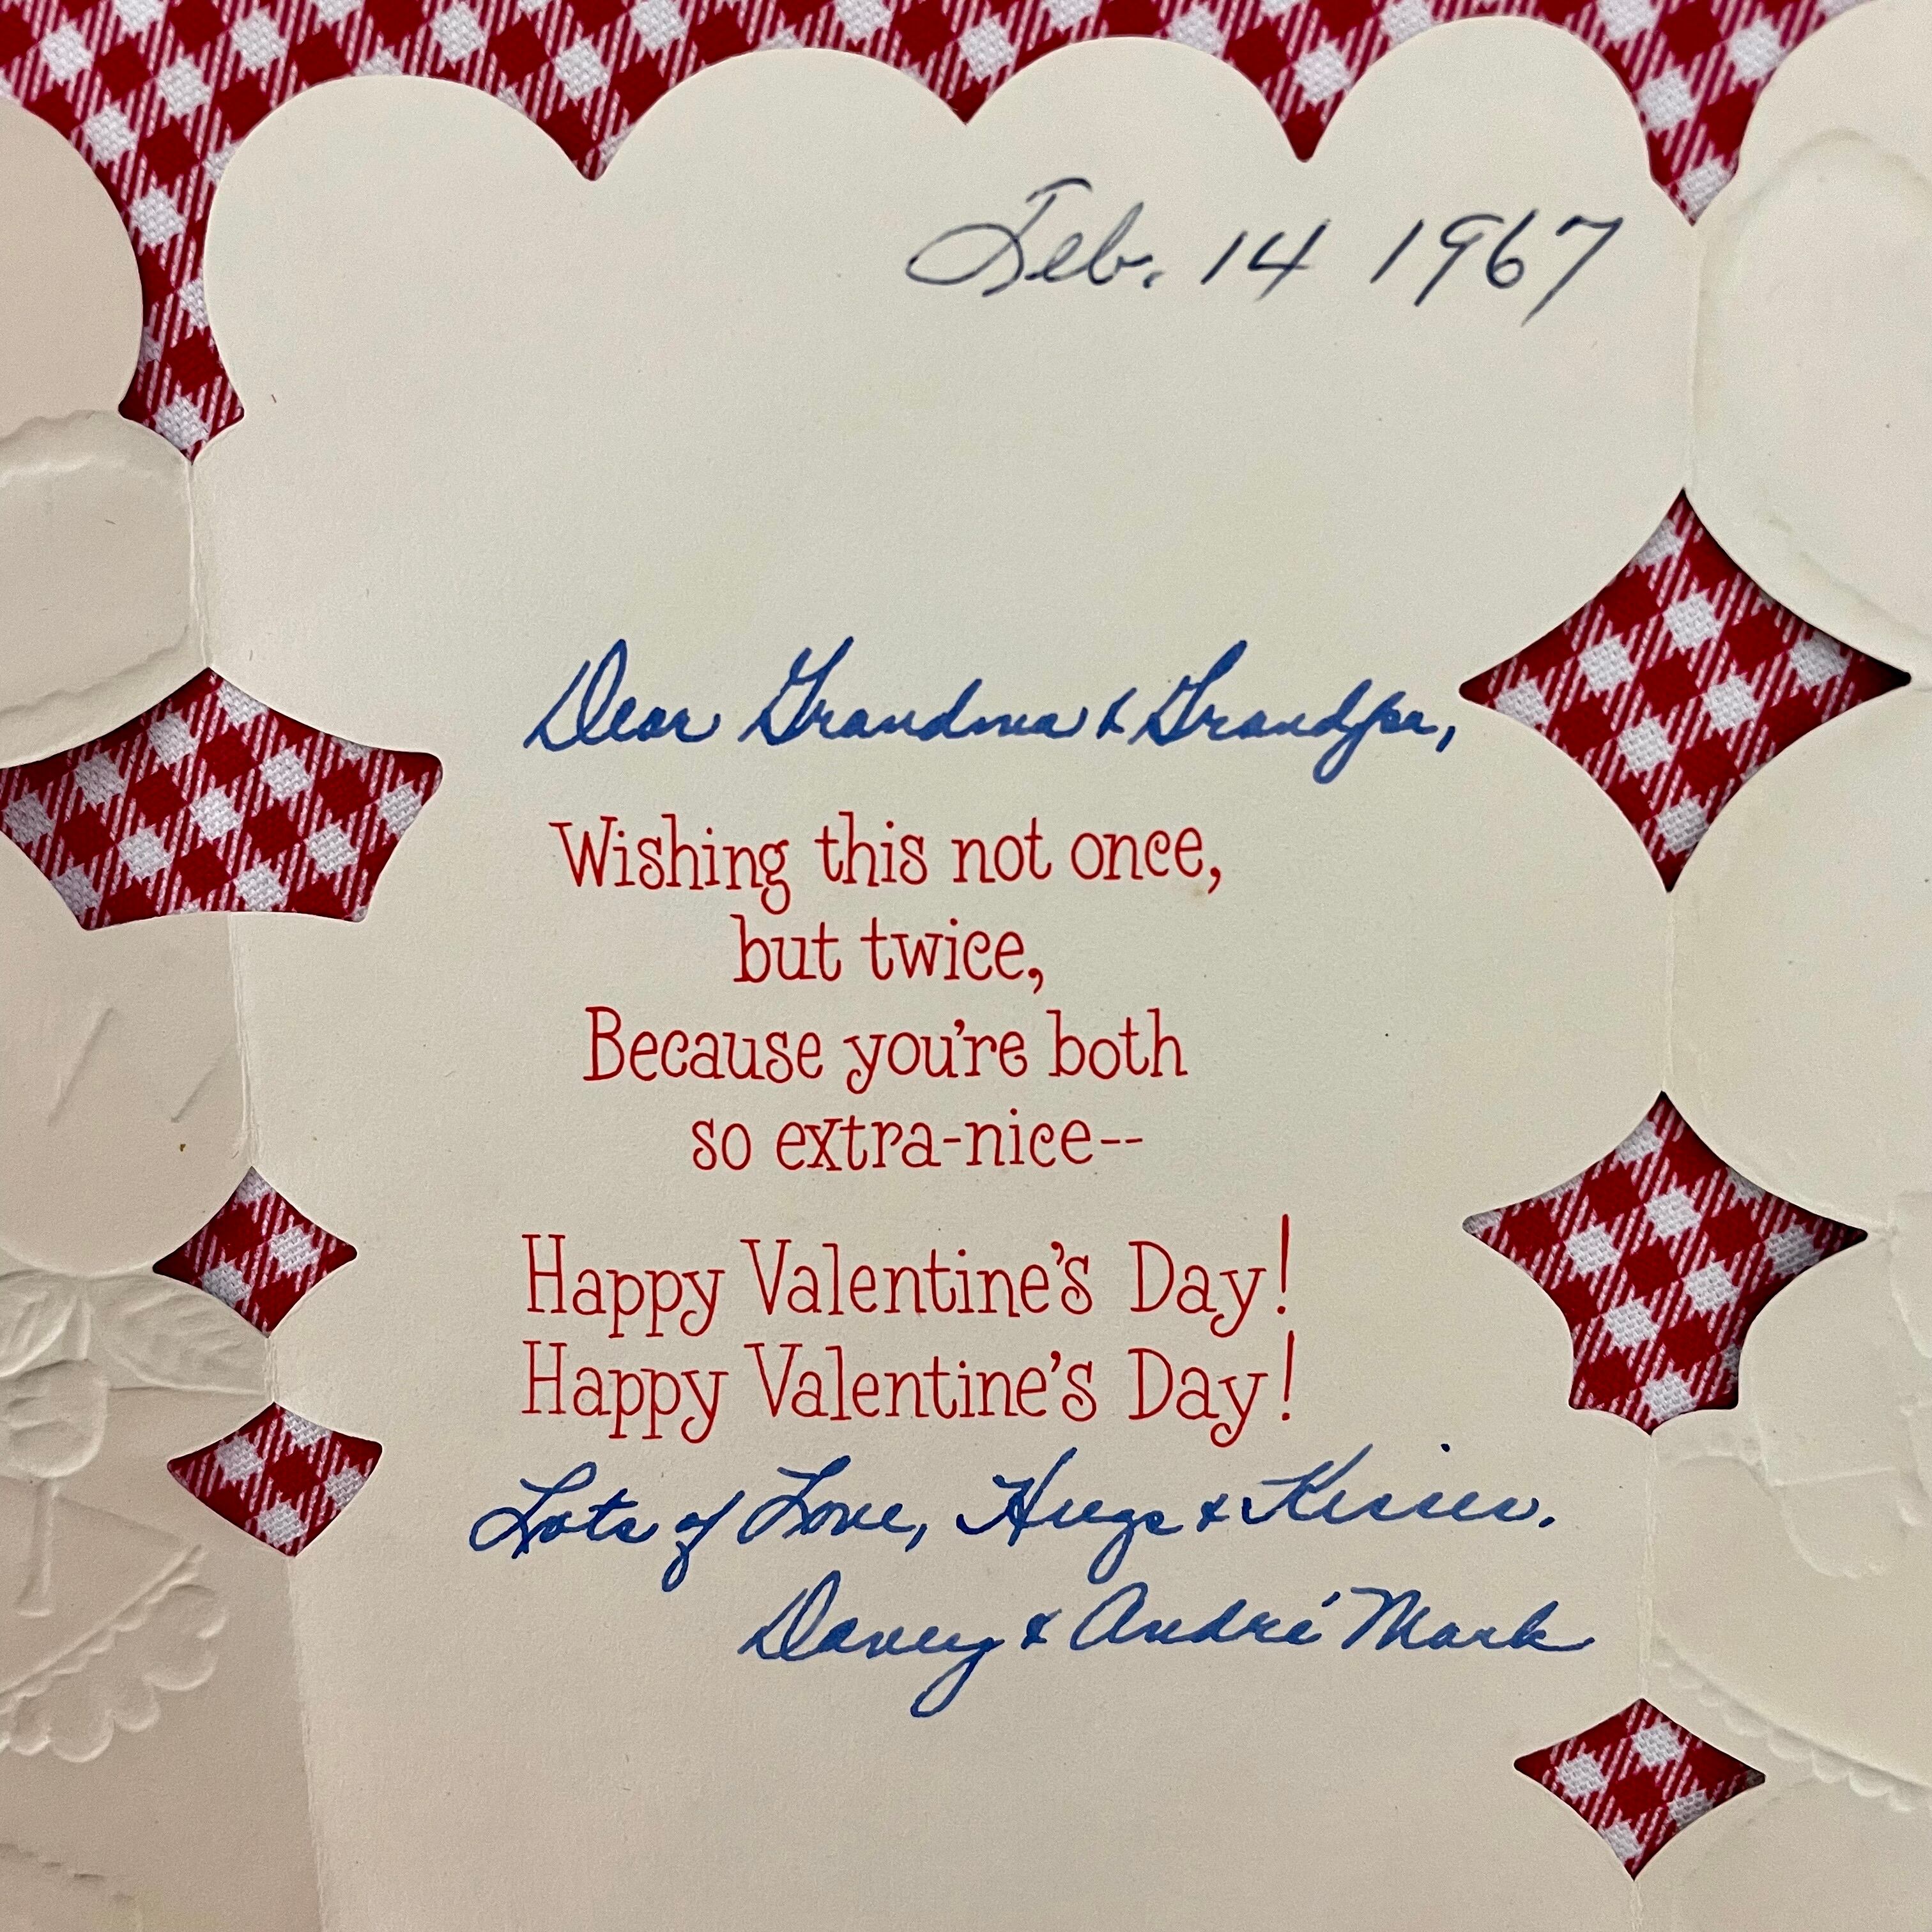 Feb. 14 1967
Dear Grandma & Grandpa,
Wishing this not once,
but twice,
Because you're both
so extra-nice--
Happy Valentine's Day!
Happy Valentine's Day!
Lots of Love, Hugs & Kisses.
Davey & André Mark